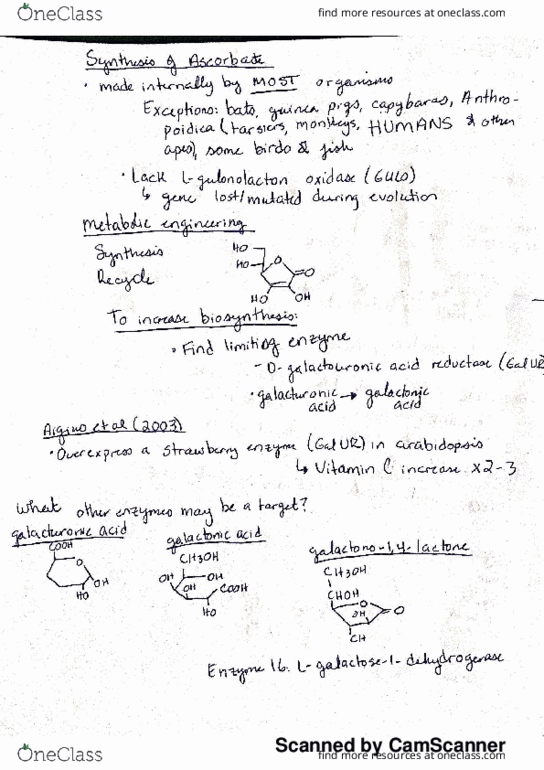 OneClass
find more resources at oneclass.com
Synthesis of Ascorbate
• made internally by MOST organisms
Exceptions: bats, guinea pigs, capybaras, Anthro-
poidica (tarsiers, monkeys, HUMANS & other
apes), some birds & fish
• Lack L-gulonolacton oxidase (GULO)
↳ gene lost/mutated during evolution
metabolic engineering
Synthesis
Recycle
HO
HO
O
O
HO
OH
To increase biosynthesis:
• Find limiting enzyme
- D-galactouronic acid reductase (GalUR
• galacturonic acid → galactonic acid
et al (2003)
• Overexpress a strawberry enzyme (GalUR) in arabidopsis
↳ Vitamin C increase x2-3
What other enzymes may be a target?
galacturonic acid
COOH
O
OH
HO
galactonic acid
CH3OH
OH
OH
OH
COOH
HO
galactono-1,4-lactone
CH3OH
CHOH
O
O
OH
CH
Enzyme 16. L-galactose-1-dehydrogerase
Scanned by CamScanner
OneClass
find more resources at oneclass.com